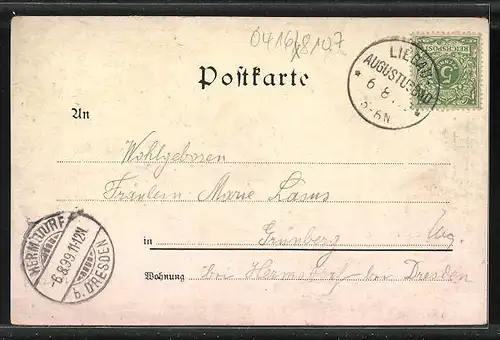 0416/8107
Postkarte
LIEGAU
AUGUSTUSBAD
6 8
5-6N
5
REICHSPOST
An
Wohlgeboren
Fräulein Marie Lasus
in Grünberg
Wohnung bei Hermsdorf bei Dresden
HERMSDORF
-6.8.99.11-12N.
b. DRESDEN